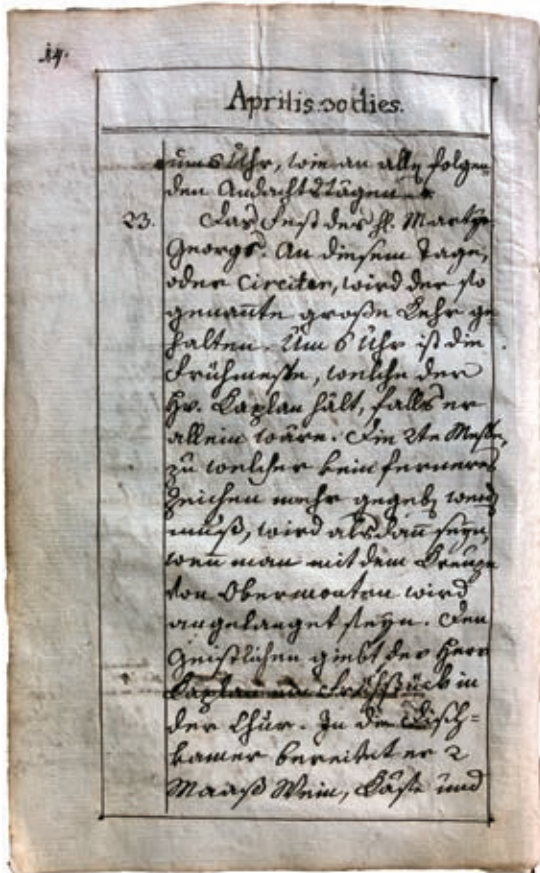 14.
Aprilis 30 dies.
um 6 Uhr, wie an allen folgen=
den Andachtstägen
23. Das Fest des hl. Martyr
Georgs. An diesem Tage,
oder Circiter, wird der so
genañte große Kehr ge
halten. Um 6 Uhr ist die
Frühmesse, welche der
Hr. Kaplan hält, falls er
allein wäre. Die 2te Messe,
zu welcher kein ferneres
Zeichen mehr gegeben werden
muß, wird alsdañ seyn,
weñ man mit dem Kreuze
von Obermontan wird
angelanget seyn. Den
Geistlichen giebt der Herr
Kaplan ein Frühstück in
der Chur. In die Tisch=
kamer bereitet er 2
Maaß Wein, Käse und